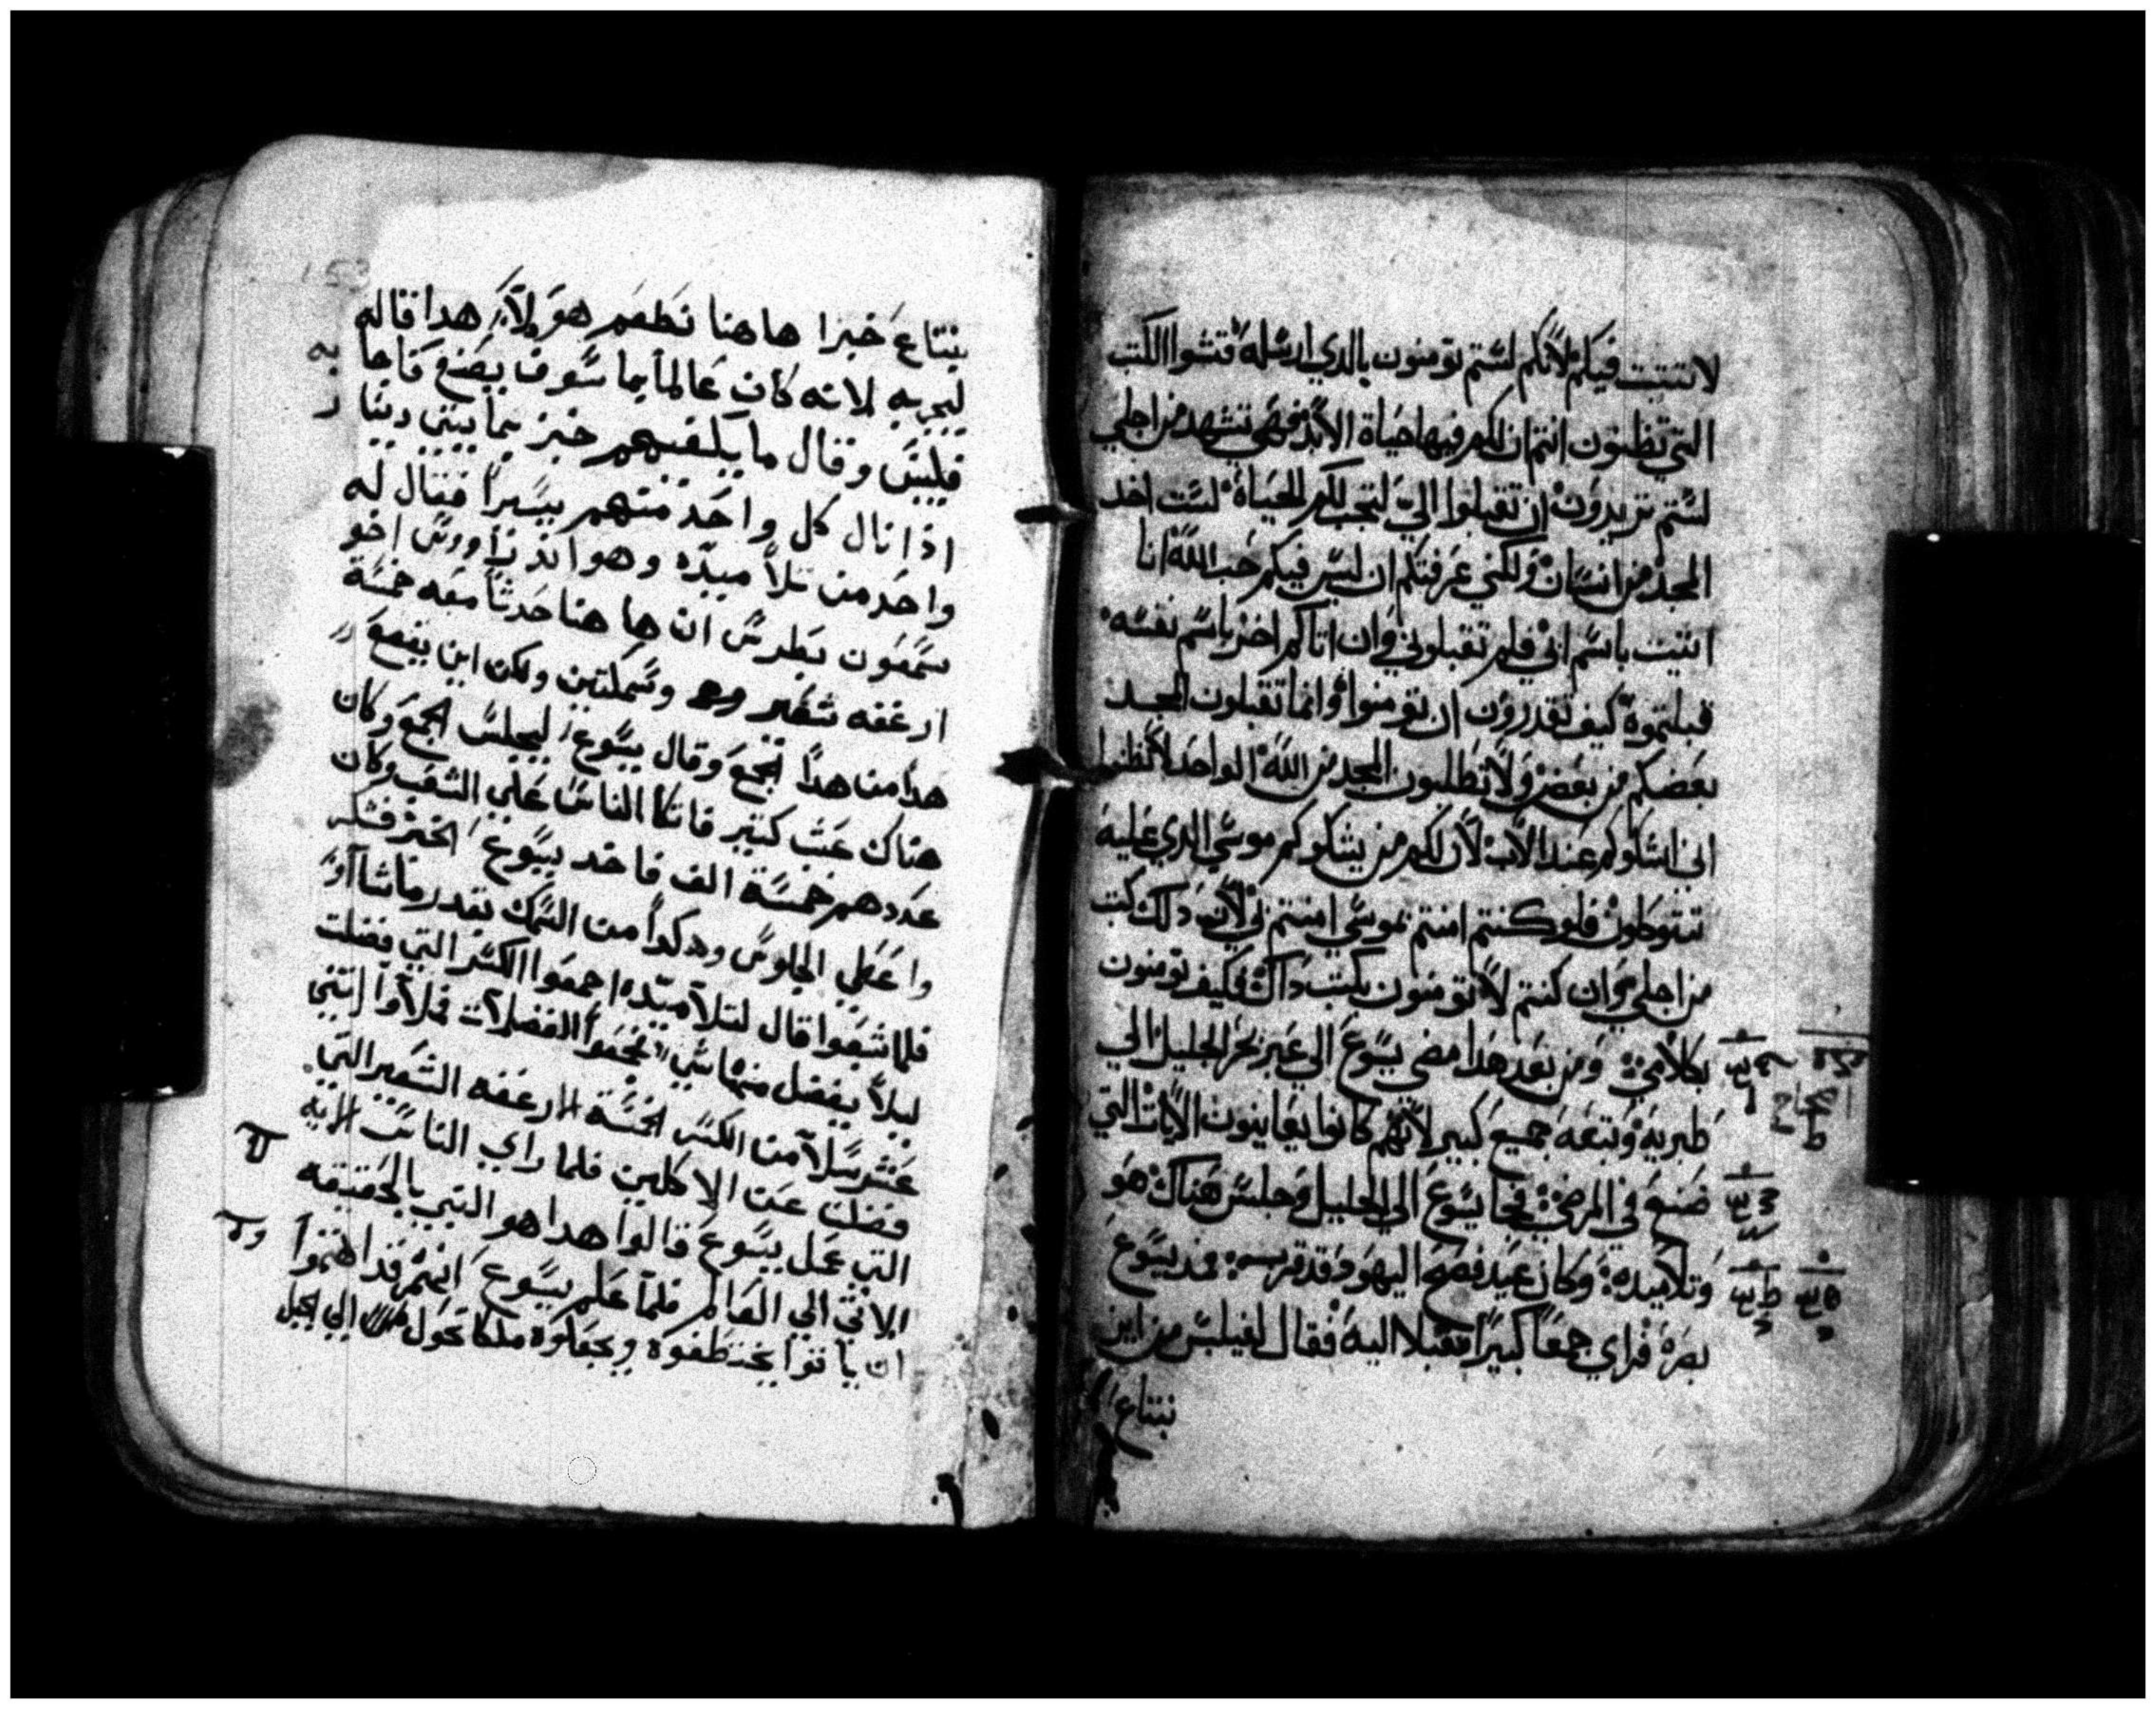 لاتثبت فيكم لانكم لستم تومنون بالدي ارسله فتشوا الكتب
التي تظنون انتم ان لكم فيها حياة الابد فهي تشهد من اجلي
لستم تريدون ان تقبلوا الي لتجب لكم الحياة لست اخد
المجد من انسان ولكني عرفتكم ان ليس فيكم حب الله انا
اتيت باسم ابي فلم تقبلوني وان اتاكم اخر باسم نفسه
قبلتموه كيف تقدرون ان تومنوا وانما تقبلون المجد
بعضكم من بعض ولا تطلبون المجد من الله الواحد لا تظنوا
اني اشكوكم عند الاب لان لكم من يشكوكم موسي الدي عليه
تتوكلون فلو كنتم امنتم بموسي امنتم بي لان دلك كتب
من اجلي وان كنتم لا تومنون بكتب داك فكيف تومنون
بكلامي ومن بعد هدا مضي يسوع الي عبر بحر الجليل الي
طبريه وتبعه جميع كبير لانهم كانوا يعاينون الايات التي
صنع في المرضي فجا يسوع الي الجليل وجلس هناك هو
وتلاميده وكان عيد فصح اليهود قد قرب فمد يسوع
بصره فراي جمعا كبيرا مقبلا اليه فقال لفيلبس من اين
نبتاع
153
نبتاع خبزا هاهنا نطعم هولاء هدا قاله
ليجربه لانه كان عالما بما سوف يصنع فاجابه
فليبس وقال ما يكفيهم خبز بمايتي دينار
ادا نال كل واحد منهم يسيرا فقال له
واحد من تلاميده وهو اندراوس اخو
سمعون بطرس ان هاهنا حدثا معه خمسة
ارغفه شعير وسمكتين ولكن اين يقع
هدا من هدا الجمع وقال يسوع ليجلس الجمع وكان
هناك عشب كتير فاتكا الناس علي العشب وكان
عددهم خمسة الف فاخد يسوع الخبز فشكر
واعطي الجلوس وهكدا من السمك بقدر ماشاوا
فلما شبعوا قال لتلاميده اجمعوا الكسر التي فضلت
ليلا يفضل منها شي فجمعوا الفضلات فملاوا اتني
عشر سلا من الكسر الخمسة الارغفه الشعير التي
فضلت عن الاكلين فلما راي الناس الايه
التي عمل يسوع قالوا هدا هو النبي بالحقيقه
الاتي الي العالم فلما علم يسوع انهم قد اهتموا
ان ياتوا يختطفوه ويجعلوه ملكا تحول الي الجبل